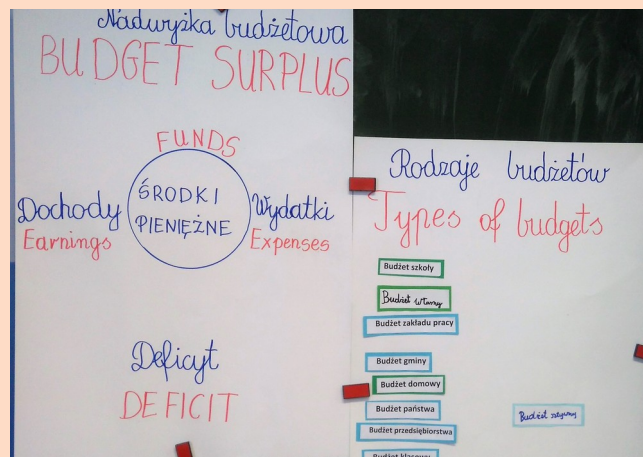 Nadwyżka budżetowa
BUDGET SURPLUS
FUNDS
ŚRODKI
PIENIĘŻNE
Dochody
Earnings
Wydatki
Expenses
Deficyt
DEFICIT
Rodzaje budżetów
Types of budgets
Budżet szkoły
Budżet własny
Budżet zakładu pracy
Budżet gminy
Budżet domowy
Budżet państwa
Budżet przedsiębiorstwa
Budżet klasowy
Budżet